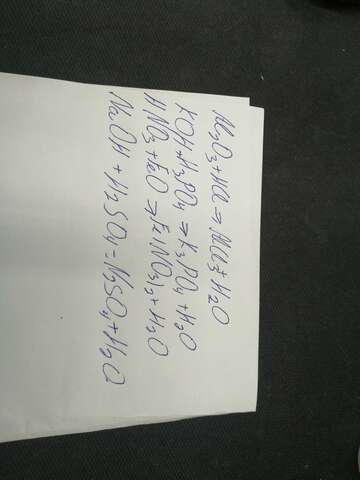 Al2O3+HCl⇒AlCl3+H2O
KOH+H3PO4⇒K3PO4+H2O
HNO3+FeO⇒Fe(NO3)2+H2O
NaOH+H2SO4=N2SO4+H2O